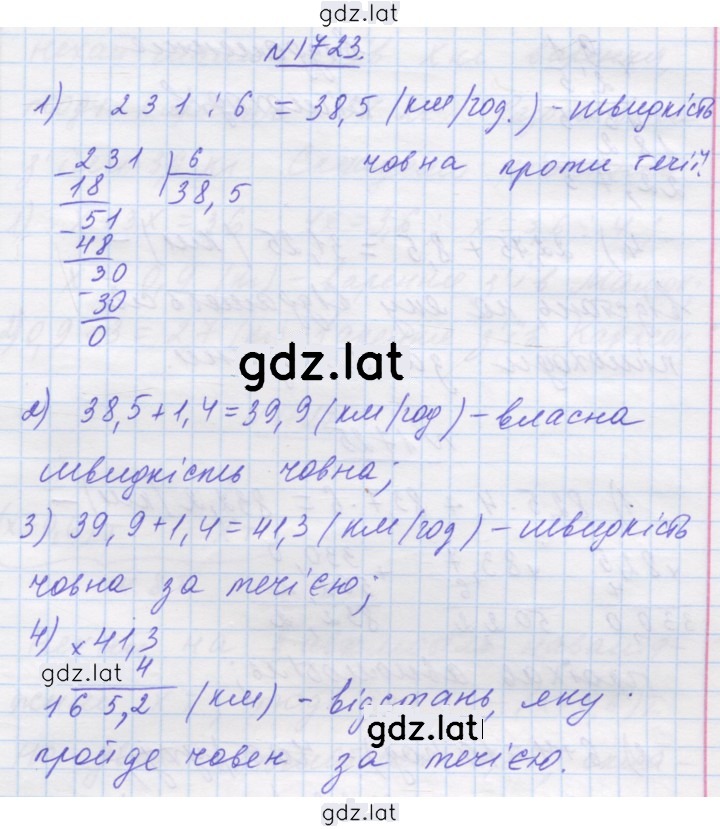 gdz.lat
N1723.
1) 231 : 6 = 38,5 (км/год.) - швидкість
човна проти течії;
- 231 | 6
18 38,5
- 51
48
30
- 30
0
gdz.lat
2) 38,5+1,4=39,9 (км/год) - власна
швидкість човна;
3) 39,9+1,4=41,3 (км/год) - швидкість
човна за течією;
4) × 41,3
gdz.lat 4
165,2 (км) - відстань, яку
gdz.lat
пройде човен за течією.
gdz.lat